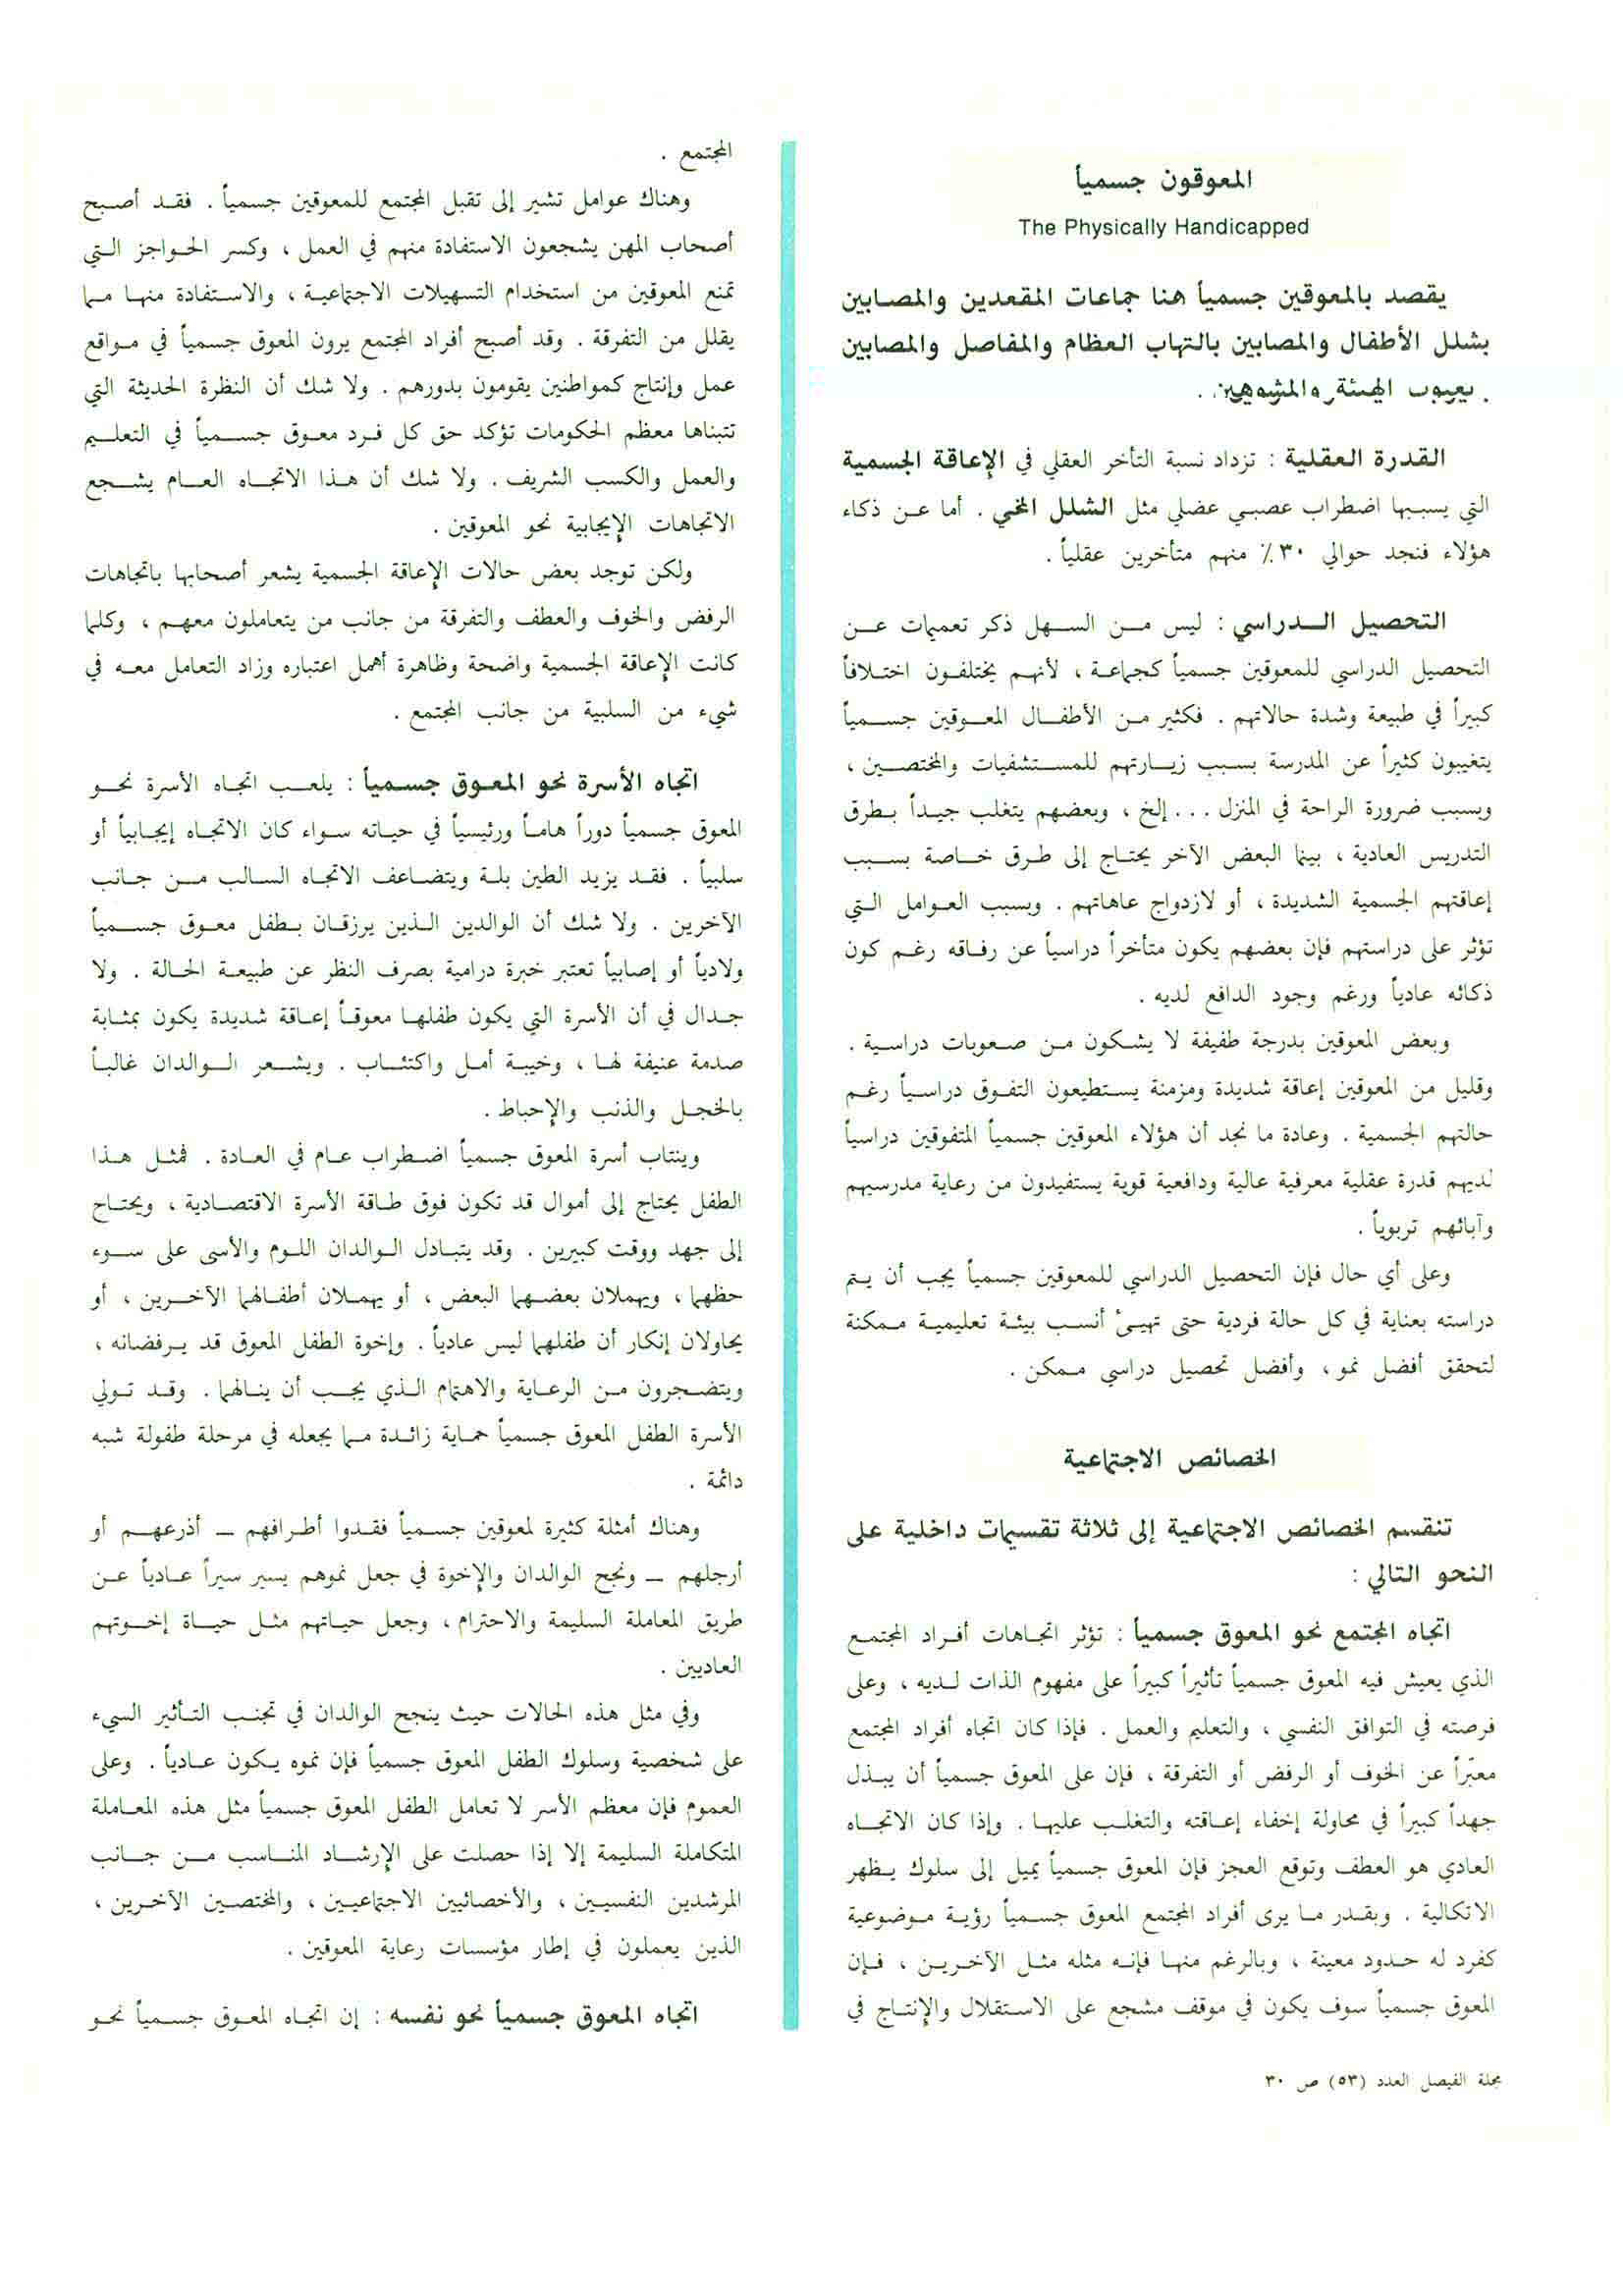 المعوقون جسمياً
The Physically Handicapped
يقصد بالمعوقين جسمياً هنا جماعات المقعدين والمصابين
بشلل الأطفال والمصابين بالتهاب العظام والمفاصل والمصابين
بعيوب الهيئة والمشوهين .
القدرة العقلية : تزداد نسبة التأخر العقلي في الإعاقة الجسمية
التي يسببها اضطراب عصبي عضلي مثل الشلل المخي . أما عن ذكاء
هؤلاء فنجد حوالي ٣٠٪ منهم متأخرين عقلياً .
التحصيل الدراسي : ليس من السهل ذكر تعميمات عن
التحصيل الدراسي للمعوقين جسمياً كجماعة ، لأنهم يختلفون اختلافاً
كبيراً في طبيعة وشدة حالاتهم . فكثير من الأطفال المعوقين جسمياً
يتغيبون كثيراً عن المدرسة بسبب زيارتهم للمستشفيات والمختصين ،
وبسبب ضرورة الراحة في المنزل ... إلخ ، وبعضهم يتغلب جيداً بطرق
التدريس العادية ، بينما البعض الآخر يحتاج إلى طرق خاصة بسبب
إعاقتهم الجسمية الشديدة ، أو لازدواج عاهاتهم . وبسبب العوامل التي
تؤثر على دراستهم فإن بعضهم يكون متأخراً دراسياً عن رفاقه رغم كون
ذكائه عادياً ورغم وجود الدافع لديه .
وبعض المعوقين بدرجة طفيفة لا يشكون من صعوبات دراسية .
وقليل من المعوقين إعاقة شديدة ومزمنة يستطيعون التفوق دراسياً رغم
حالتهم الجسمية . وعادة ما نجد أن هؤلاء المعوقين جسمياً المتفوقين دراسياً
لديهم قدرة عقلية معرفية عالية ودافعية قوية يستفيدون من رعاية مدرسيهم
وآبائهم تربوياً .
وعلى أي حال فإن التحصيل الدراسي للمعوقين جسمياً يجب أن يتم
دراسته بعناية في كل حالة فردية حتى تهيئ أنسب بيئة تعليمية ممكنة
لتحقق أفضل نمو ، وأفضل تحصيل دراسي ممكن .
الخصائص الاجتماعية
تنقسم الخصائص الاجتماعية إلى ثلاثة تقسيمات داخلية على
النحو التالي :
اتجاه المجتمع نحو المعوق جسمياً : تؤثر اتجاهات أفراد المجتمع
الذي يعيش فيه المعوق جسمياً تأثيراً كبيراً على مفهوم الذات لديه ، وعلى
فرصته في التوافق النفسي ، والتعليم والعمل . فإذا كان اتجاه أفراد المجتمع
معبّراً عن الخوف أو الرفض أو التفرقة ، فإن على المعوق جسمياً أن يبذل
جهداً كبيراً في محاولة إخفاء إعاقته والتغلب عليها . وإذا كان الاتجاه
العادي هو العطف وتوقع العجز فإن المعوق جسمياً يميل إلى سلوك يظهر
الاتكالية . وبقدر ما يرى أفراد المجتمع المعوق جسمياً رؤية موضوعية
كفرد له حدود معينة ، وبالرغم منها فإنه مثله مثل الآخرين ، فإن
المعوق جسمياً سوف يكون في موقف مشجع على الاستقلال والإنتاج في
المجتمع .
وهناك عوامل تشير إلى تقبل المجتمع للمعوقين جسمياً . فقد أصبح
أصحاب المهن يشجعون الاستفادة منهم في العمل ، وكسر الحواجز التي
تمنع المعوقين من استخدام التسهيلات الاجتماعية ، والاستفادة منها مما
يقلل من التفرقة . وقد أصبح أفراد المجتمع يرون المعوق جسمياً في مواقع
عمل وإنتاج كمواطنين يقومون بدورهم . ولا شك أن النظرة الحديثة التي
تتبناها معظم الحكومات تؤكد حق كل فرد معوق جسمياً في التعليم
والعمل والكسب الشريف . ولا شك أن هذا الاتجاه العام يشجع
الاتجاهات الإيجابية نحو المعوقين .
ولكن توجد بعض حالات الإعاقة الجسمية يشعر أصحابها باتجاهات
الرفض والخوف والعطف والتفرقة من جانب من يتعاملون معهم ، وكلما
كانت الإعاقة الجسمية واضحة وظاهرة أهمل اعتباره وزاد التعامل معه في
شيء من السلبية من جانب المجتمع .
اتجاه الأسرة نحو المعوق جسمياً : يلعب اتجاه الأسرة نحو
المعوق جسمياً دوراً هاماً ورئيسياً في حياته سواء كان الاتجاه إيجابياً أو
سلبياً . فقد يزيد الطين بلة ويتضاعف الاتجاه السالب من جانب
الآخرين . ولا شك أن الوالدين الذين يرزقان بطفل معوق جسمياً
ولادياً أو إصابياً تعتبر خبرة درامية بصرف النظر عن طبيعة الحالة . ولا
جدال في أن الأسرة التي يكون طفلها معوقاً إعاقة شديدة يكون بمثابة
صدمة عنيفة لها ، وخيبة أمل واكتئاب . ويشعر الوالدان غالباً
بالخجل والذنب والإحباط .
وينتاب أسرة المعوق جسمياً اضطراب عام في العادة . فمثل هذا
الطفل يحتاج إلى أموال قد تكون فوق طاقة الأسرة الاقتصادية ، ويحتاج
إلى جهد ووقت كبيرين . وقد يتبادل الوالدان اللوم والأسى على سوء
حظهما ، ويهملان بعضهما البعض ، أو يهملان أطفالهما الآخرين ، أو
يحاولان إنكار أن طفلهما ليس عادياً . وإخوة الطفل المعوق قد يرفضانه ،
ويتضجرون من الرعاية والاهتمام الذي يجب أن ينالهما . وقد تولي
الأسرة الطفل المعوق جسمياً حماية زائدة مما يجعله في مرحلة طفولة شبه
دائمة .
وهناك أمثلة كثيرة لمعوقين جسمياً فقدوا أطرافهم ــ أذرعهم أو
أرجلهم ــ ونجح الوالدان والإخوة في جعل نموهم يسير سيراً عادياً عن
طريق المعاملة السليمة والاحترام ، وجعل حياتهم مثل حياة إخوتهم
العاديين .
وفي مثل هذه الحالات حيث ينجح الوالدان في تجنب التأثير السيء
على شخصية وسلوك الطفل المعوق جسمياً فإن نموه يكون عادياً . وعلى
العموم فإن معظم الأسر لا تعامل الطفل المعوق جسمياً مثل هذه المعاملة
المتكاملة السليمة إلا إذا حصلت على الإرشاد المناسب من جانب
المرشدين النفسيين ، والأخصائيين الاجتماعيين ، والمختصين الآخرين ،
الذين يعملون في إطار مؤسسات رعاية المعوقين .
اتجاه المعوق جسمياً نحو نفسه : إن اتجاه المعوق جسمياً نحو
مجلة الفيصل العدد (٥٣) ص ٣٠